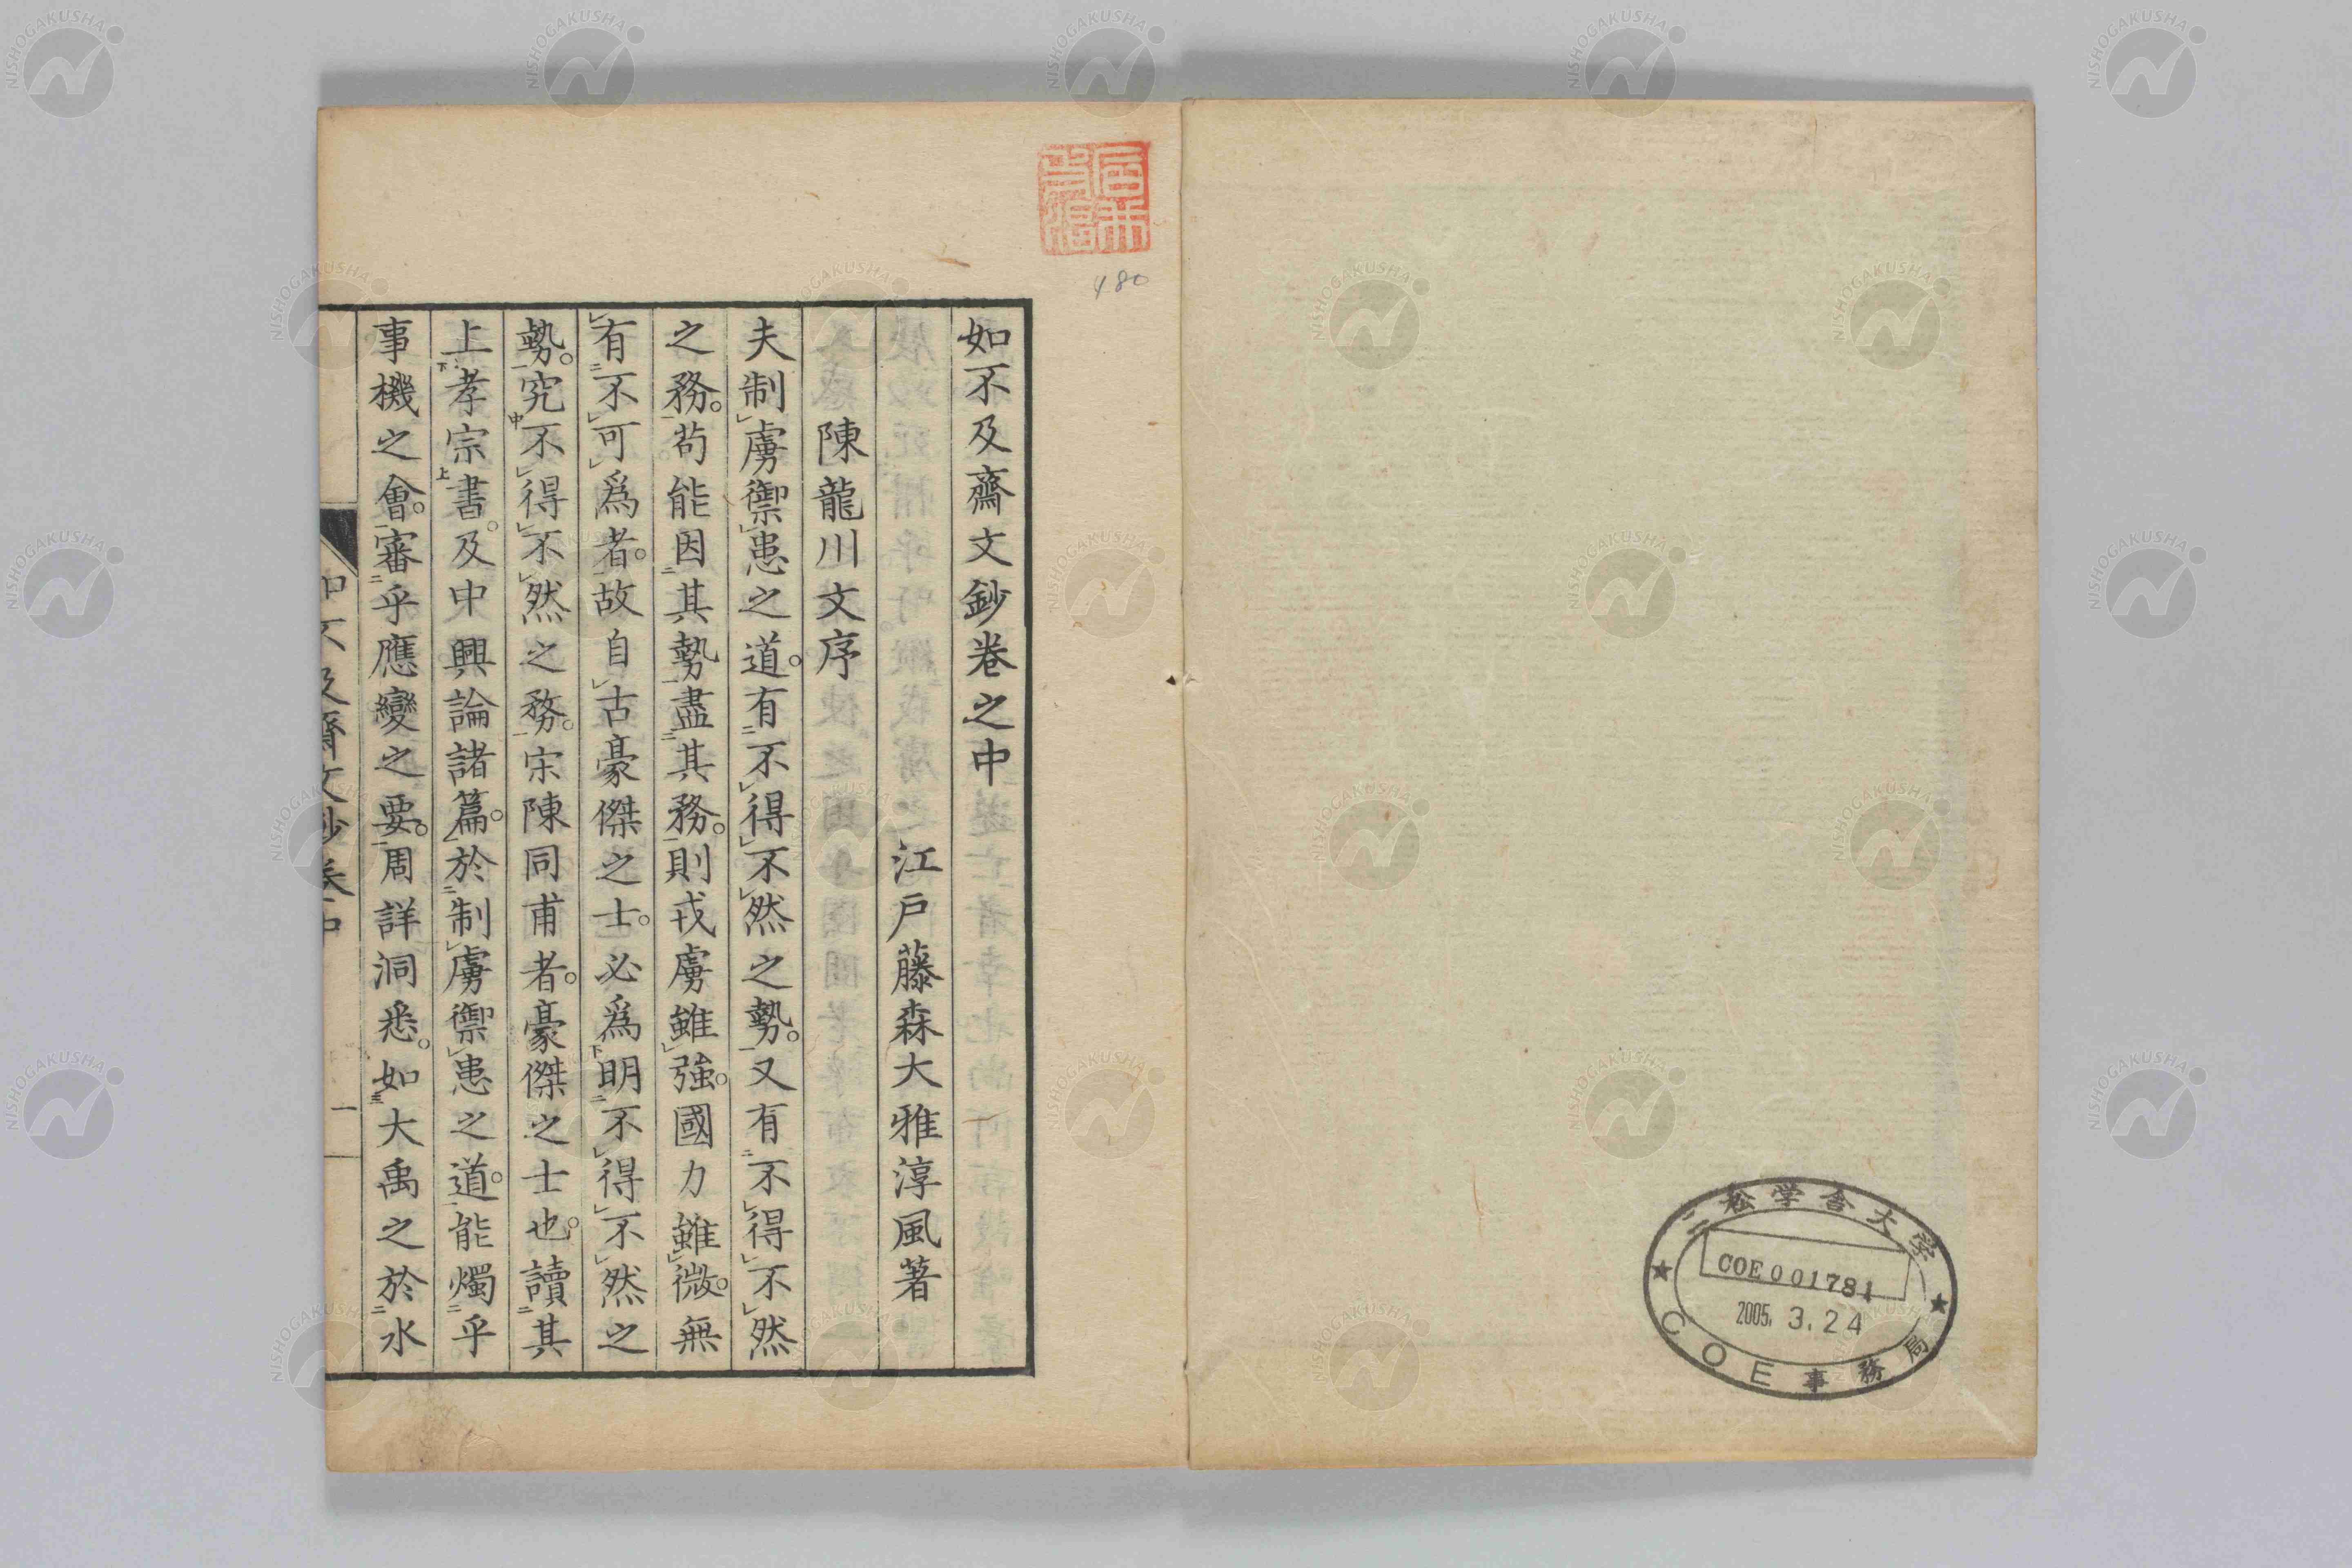 如不及齋文鈔卷之中
江戸藤森大雅淳風著
陳龍川文序
夫制虜禦患之道。有不得不然之勢。又有不得不然
之務。苟能因其勢盡其務。則戎虜雖強。國力雖微。無
有不可爲者。故自古豪傑之士。必爲明不得不然之
勢。究不得不然之務。宋陳同甫者。豪傑之士也。讀其
上孝宗書。及中興論諸篇。於制虜禦患之道。能燭乎
事機之會。審乎應變之要。周詳洞悉。如大禹之於水
如不及齋文鈔卷中
一
480
二松学舎大学
COE001781
2005. 3. 24
COE事務局
NISHOGAKUSHA